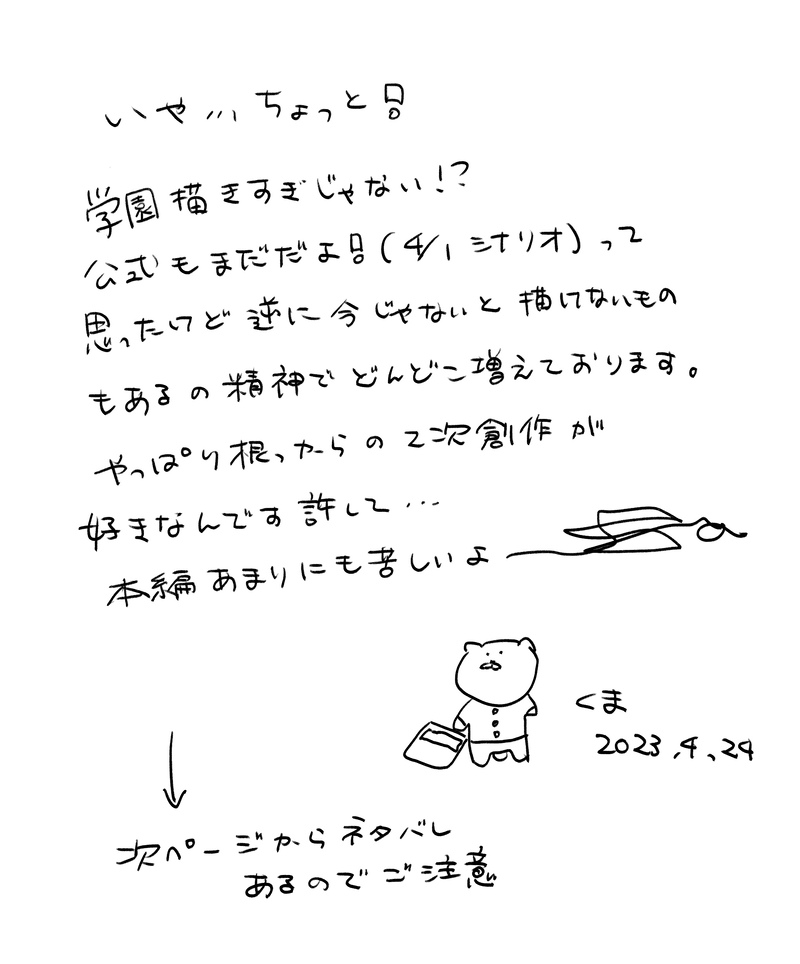 いや…ちょっと!!
学園描きすぎじゃない!?
公式もまだだよ!!(4/1シナリオ)って
思ったけど逆に今じゃないと描けないもの
もあるの精神でどんどこ増えております。
やっぱり根っからの2次創作が
好きなんです許して…
本編あまりにも苦しいよ
くま
2023.4.24
次ページからネタバレ
あるのでご注意